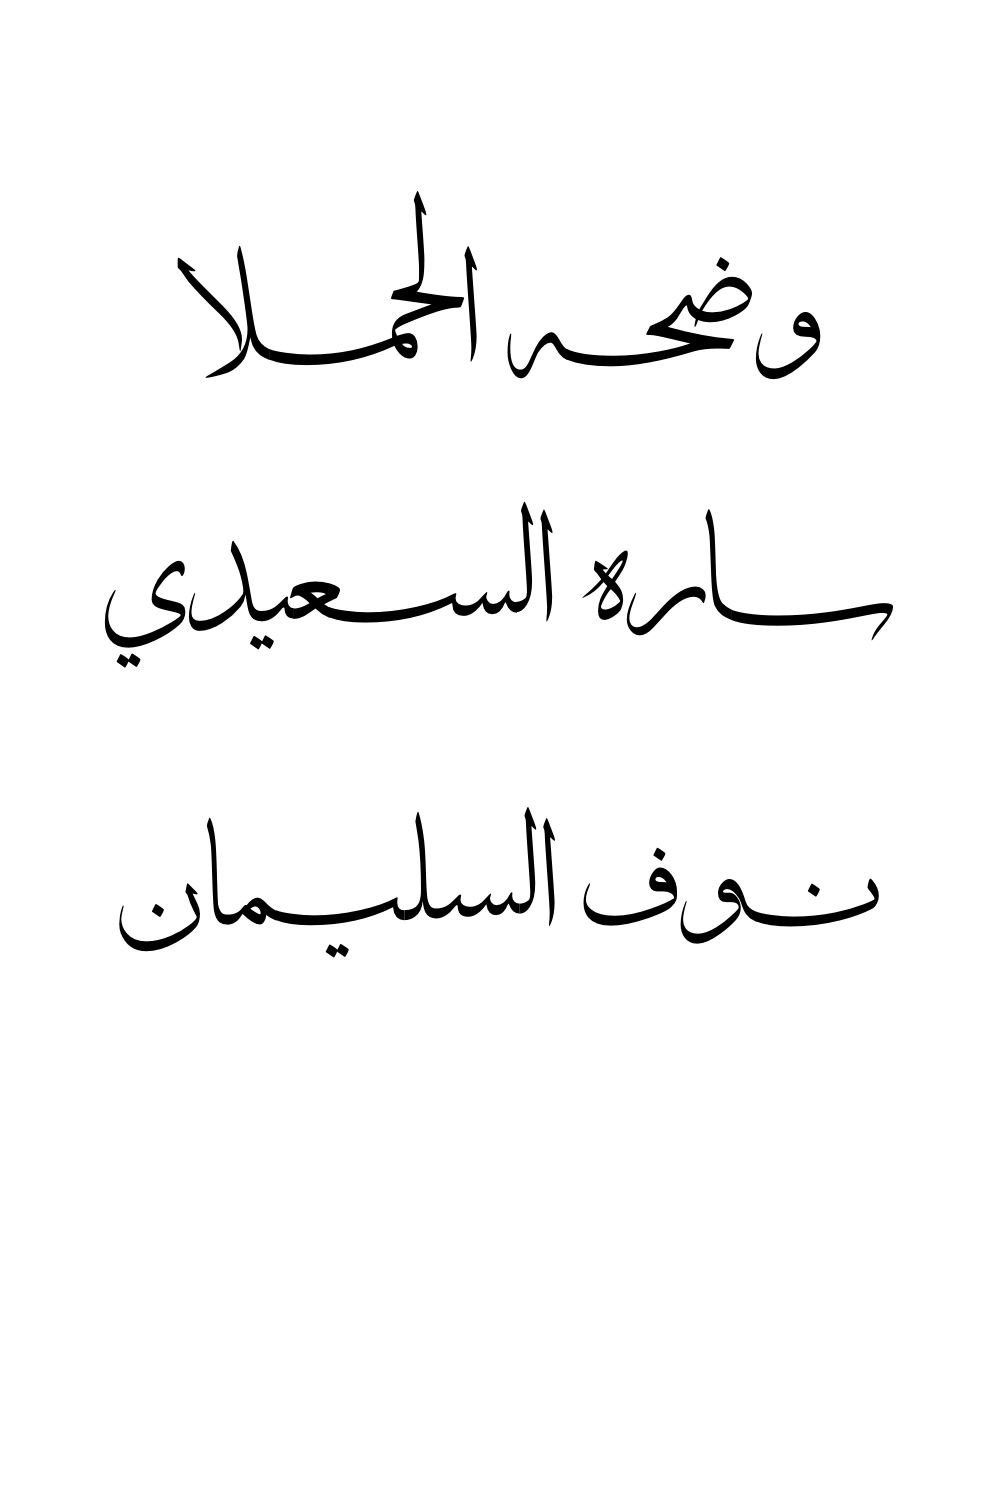 وضحه الحملا
ساره السعيدي
نوف السليمان